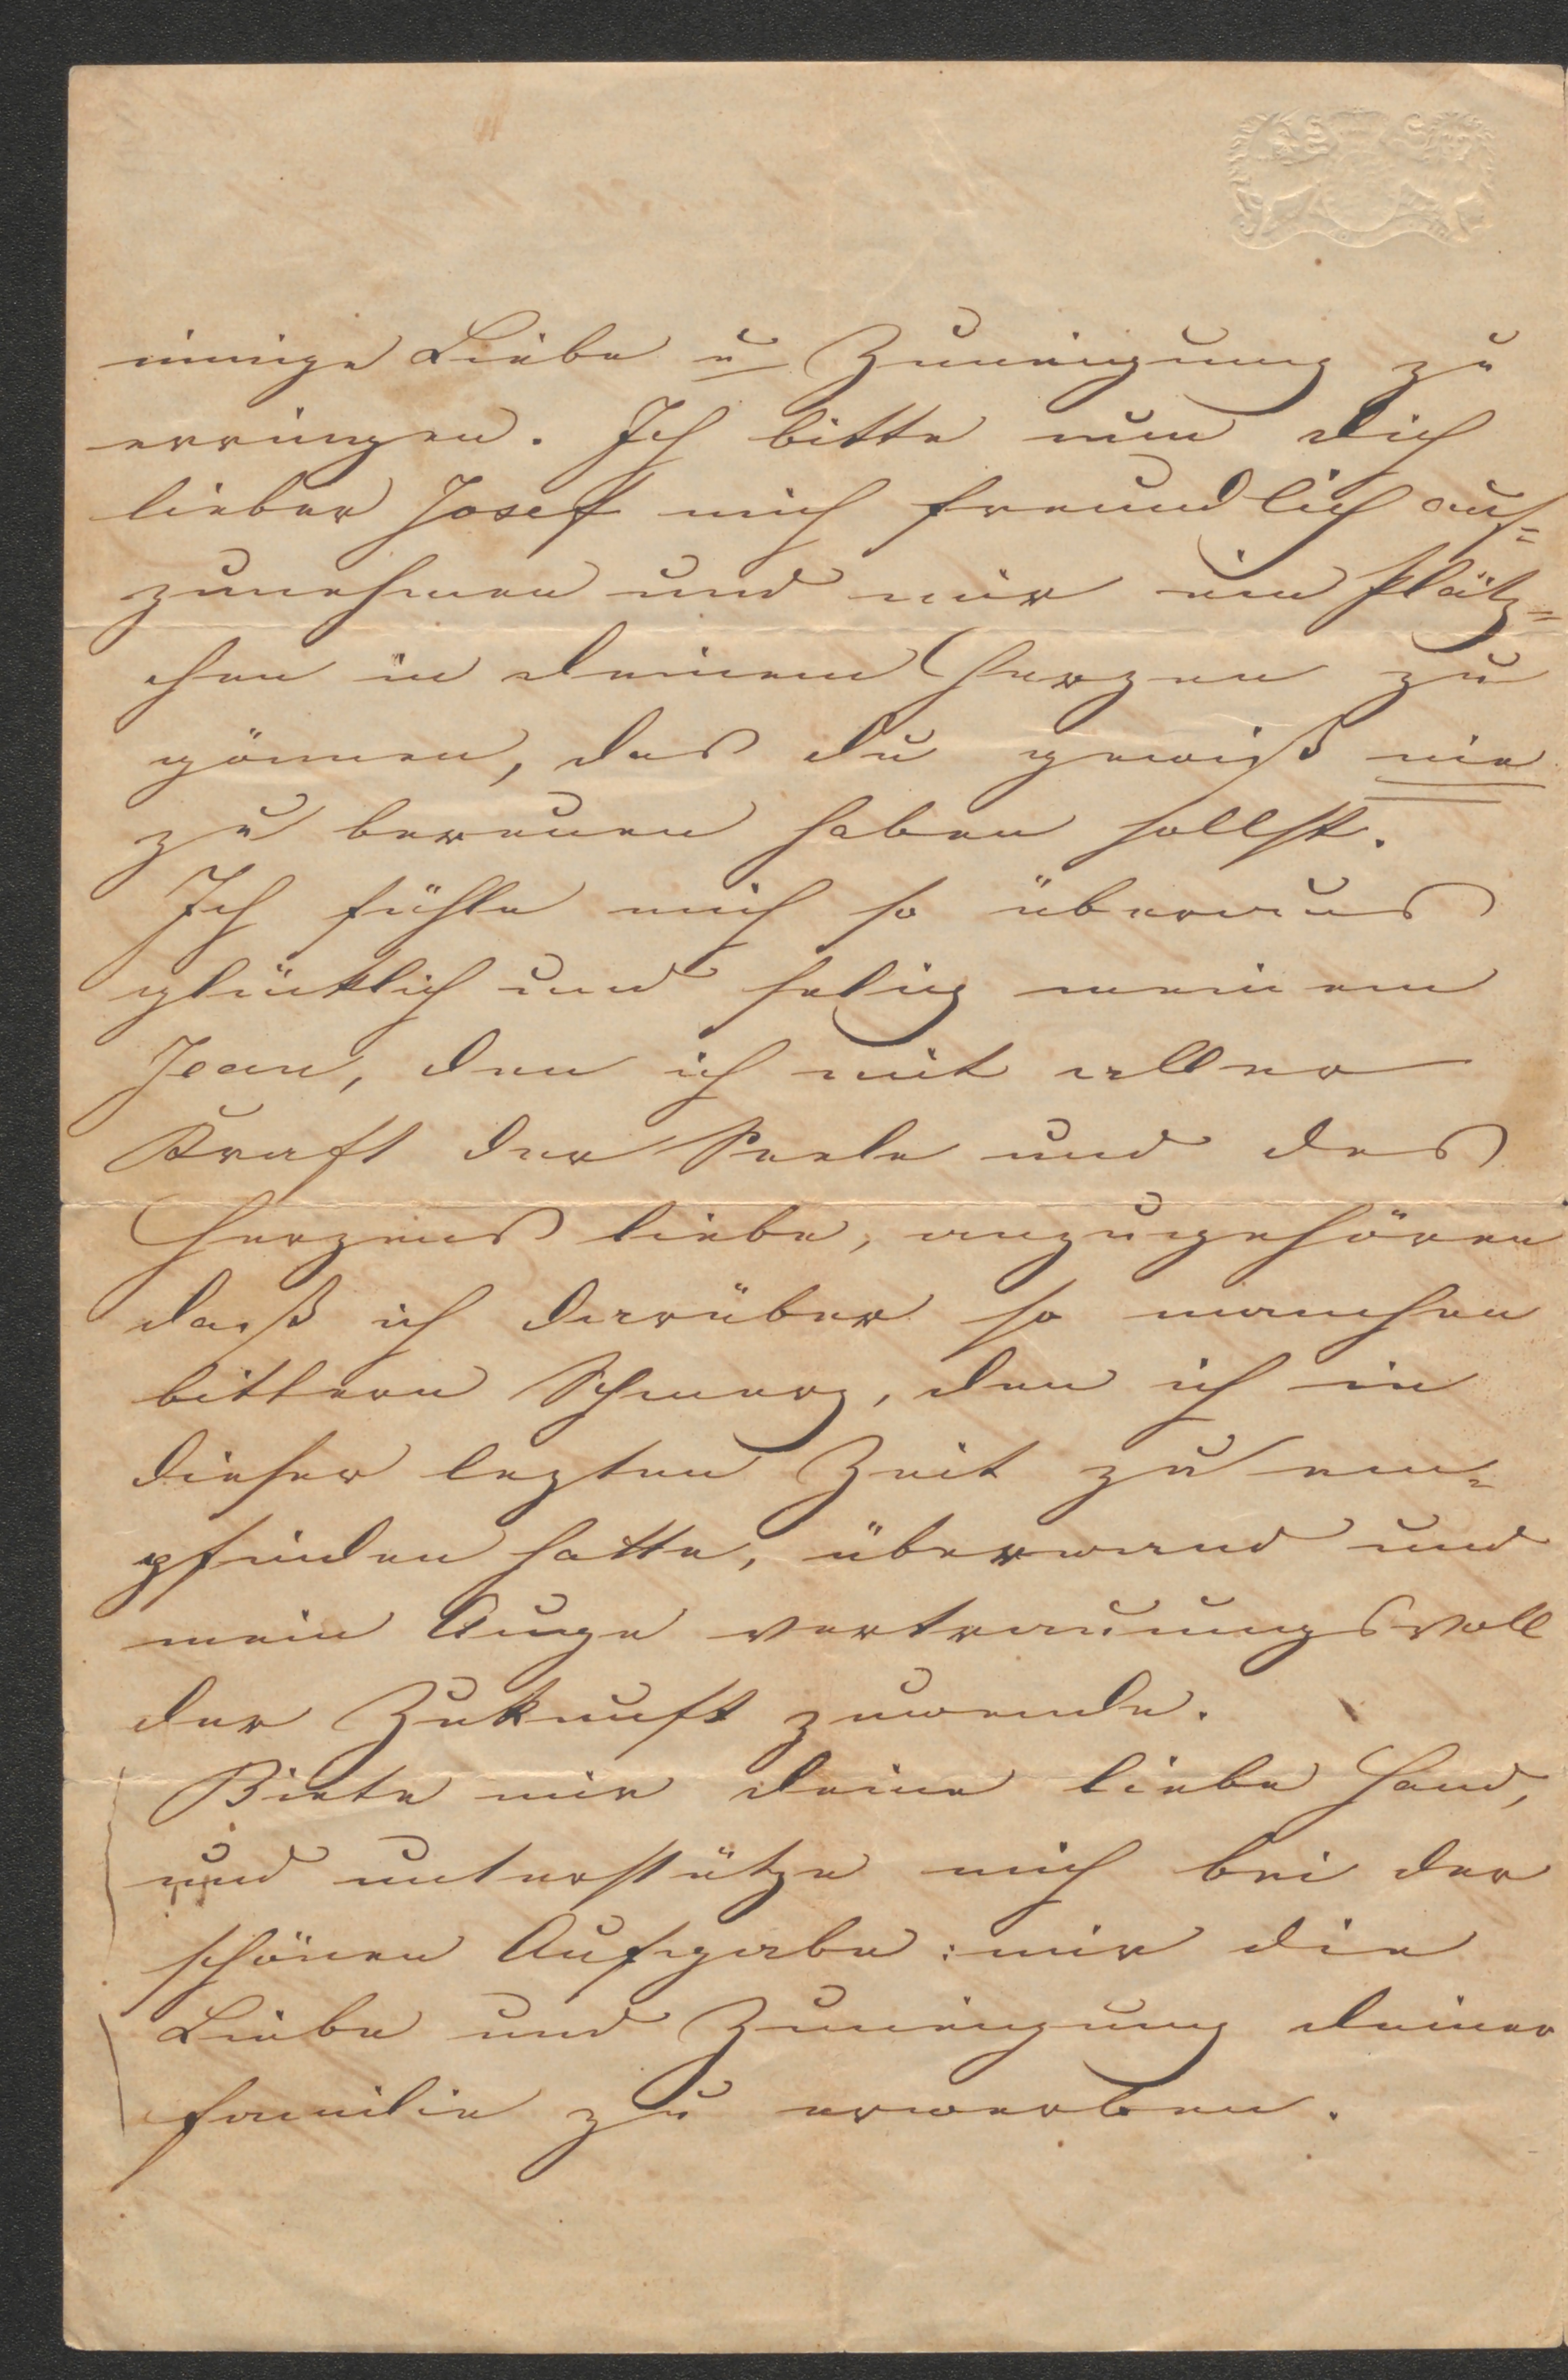 innige Liebe u Zuneigung zu
erringen. Ich bitte nun dich
lieber Josef mich freundlich auf=
zunehmen und mir ein Plätz=
chen in deinem Herzen zu
gönnen, das du gewiß nie
zu bereuen haben sollst.
Ich fühle mich so überaus
glücklich und selig meinem
Jean, den ich mit aller
Kraft der Seele und des
Herzens liebe, anzugehören
daß ich darüber so manchen
bittern Schmerz, den ich in
dieser lezten Zeit zu em=
pfinden hatte, überwand und
mein Auge vertrauungsvoll
der Zukunft zuwende.
Biete mir deine liebe Hand,
und unterstütze mich bei der
schönen Aufgabe: mir die
Liebe und Zuneigung deiner
Familie zu erwerben.